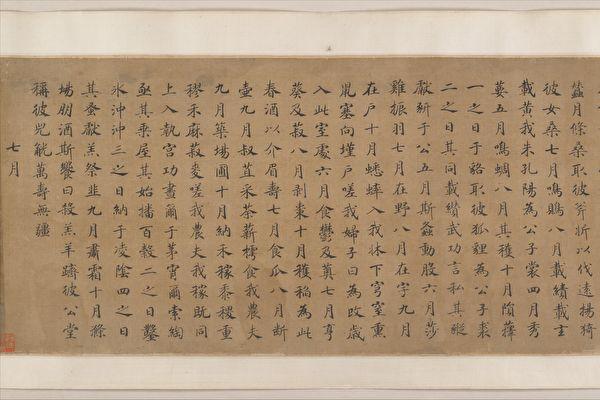 蠶月條桑取彼斧斨以伐遠揚猗
彼女桑七月鳴鵙八月載績載玄
載黃我朱孔陽為公子裳四月秀
葽五月鳴蜩八月其穫十月隕蘀
一之日于貉取彼狐貍為公子裘
二之日其同載纘武功言私其豵
獻豜于公五月斯螽動股六月莎
雞振羽七月在野八月在宇九月
在戶十月蟋蟀入我牀下穹窒熏
鼠塞向墐戶嗟我婦子曰為改歲
入此室處六月食鬱及薁七月亨
葵及菽八月剥棗十月穫稻為此
春酒以介眉壽七月食瓜八月斷
壺九月叔苴采荼薪樗食我農夫
九月築場圃十月納禾稼黍稷重
穋禾麻菽麥嗟我農夫我稼既同
上入執宮功晝爾于茅宵爾索綯
亟其乘屋其始播百穀二之日鑿
冰沖沖三之日納于凌陰四之日
其蚤獻羔祭韭九月肅霜十月滌
場朋酒斯饗曰殺羔羊躋彼公堂
稱彼兕觥萬壽無疆
七月